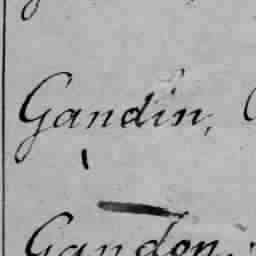 Gandin,
Gandon,